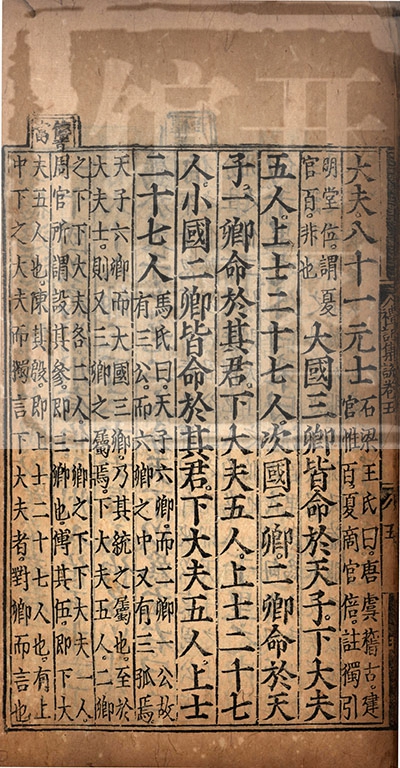 大夫。八十一元士
石梁王氏曰。唐虞稽古。建
官惟百。夏商官倍。註獨引
明堂位。謂夏
官百。非也
大國三卿。皆命於天子。下大夫
五人。上士二十七人。次國三卿。二卿命於天
子。一卿命於其君。下大夫五人。上士二十七
人。小國二卿。皆命於其君。下大夫五人。上士
二十七人
馬氏曰。天子六卿。而二卿一公。故
有三公。而六卿之中又有三孤焉。
天子六卿。而大國三卿。乃其統之屬也。至於
大夫士。則又三卿之屬焉。下大夫五人。二卿
之下。下大夫各二人。一卿之下。下大夫一人。
周官所謂設其參。即三卿也。傅其伍。即下大
夫五人也。陳其殷。即上士二十七人也。有上
中下之大夫。而獨言下大夫者。對卿而言也
禮記集說卷五
五